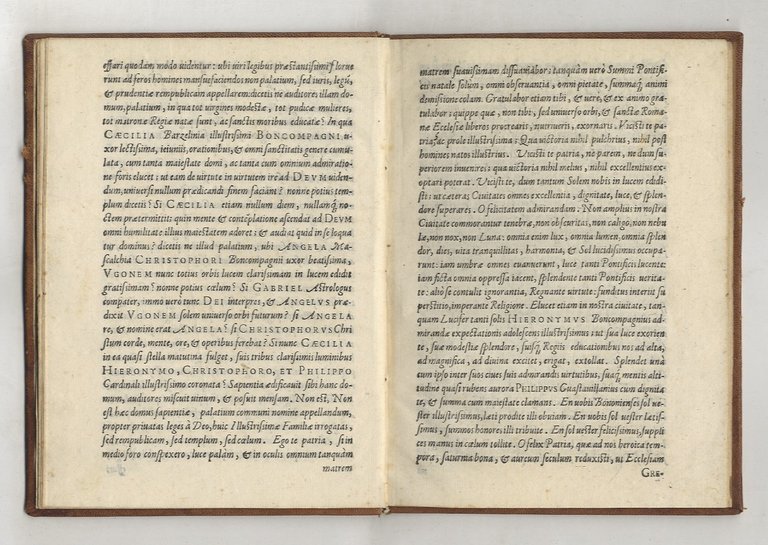 effari quodam modo uidentur: ubi uiri legibus præstantissimi floruerunt
ad feros homines mansuefaciendos non palatium, sed iuris, legũ,
& prudentiæ rempublicam appellarem: dicetis ne auditores illam domum,
palatium, in qua tot uirgines modestæ, tot pudicæ mulieres,
tot matronæ Regiæ natæ sunt, ac sanctis moribus educatæ? In qua
CÆCILIA Bargelinia illustrissimi BONCOMPAGNI uxor
lectissima, ieiuniis, orationibus, & omni sanctitatis genere cumulata,
cum tanta maiestate domi, ac tanta cum omnium admiratione
foris elucet; ut eam de uirtute in uirtutem ire ad DEVM uidendum,
uniuersi nullum prædicandi finem faciant? nonne potius templum
dicetis? Si CÆCILIA etiam nullum diem, nullamq; noctem
prætermittit; quin mente & contẽplatione ascendat ad DEVM
omni humilitate illius maiestatem adoret; & audiat quid in se loquatur
dominus? dicetis ne illud palatium, ubi ANGELA Mascalchia
CHRISTOPHORI Boncompagnii uxor beatissima,
VGONEM nunc totius orbis lucem clarissimam in lucem edidit
gratissimam? nonne potius cœlum? Si GABRIEL Astrologus
compater, immo uerò tunc DEI interpres, & ANGELVS prædixit
VGONEM solem uniuerso orbi futurum? si ANGELA
re, & nomine erat ANGELA? si CHRISTOPHORVS Christum
corde, mente, ore, & operibus ferebat? Si nunc CÆCILIA
in ea quasi stella matutina fulget, suis tribus clarissimis luminibus
HIERONYMO, CHRISTOPHORO, ET PHILIPPO
Cardinali illustrissimo coronata? Sapientia ædificauit sibi hanc domum,
auditores; miscuit uinum, & posuit mensam. Non est, Non
est hæc domus sapientiæ, palatium communi nomine appellandum,
propter priuatas leges à Deo, huic Illustrissimæ Familiæ irrogatas,
sed rempublicam, sed templum, sed cœlum. Ego te patria, si in
medio foro conspexero, luce palàm, & in oculis omnium tanquàm
matrem
matrem suauissimam dissuauiabor; tanquàm uerò Summi Pontificis
natale solum, omni obseruantia, omni pietate, summaq; animi
demissione colam. Gratulabor etiam tibi, & uerè, & ex animo gratulabor;
quippe quæ, non tibi, sed uniuerso orbi, & sanctæ Romanæ
Ecclesiæ liberos procrearis, nutriueris, exornaris. Vicisti te patria,
hac prole illustrissima; Qua uictoria nihil pulchrius, nihil post
homines natos illustrius. Vicisti te patria, nè parem, ne dum superiorem
inuenires; qua uictoria nihil melius, nihil excellentius exoptari
poterat. Vicisti te, dum tantum Solem nobis in lucem edidisti;
ut cæteras Ciuitates omnes excellentia, dignitate, luce, & splendore
superares. O felicitatem admirandam. Non amplius in nostra
Ciuitate commorantur tenebræ, non obscuritas, non caligo, non nebulæ,
non nox, non Luna: omnia enim lux, omnia lumen, omnia splendor,
dies, uita tranquillitas, harmonia, & Sol lucidissimus occuparunt:
iam umbræ omnes euanuerunt, luce tanti Pontificis lucente:
iam ficta omnia oppressa iacent, splendente tanti Pontificis ueritate:
aliò se contulit ignorantia, Regnante uirtute: funditus interiit superstitio,
imperante Religione. Elucet etiam in nostra ciuitate, tanquam
Lucifer tanti solis HIERONYMVS Boncompagnius admirandæ
expectationis adolescens illustrissimus; ut sua luce exoriente,
suæ modestiæ splendore, suisq; Regiis educationibus nos ad alta,
ad magnifica, ad diuina excitet, erigat, extollat. Splendet unà
cum ipso inter suos ciues suis admirandis uirtutibus, suaq; mentis altitudine
quasi rubens aurora PHILIPPVS Guastauillanius cum dignitate,
& summa cum maiestate clamans. En uobis Bononienses sol uester
illustrissimus, læti prodite illi obuiam. En uobis sol uester lætissimus,
summos honores illi tribuite. En sol uester felicissimus, supplices
manus in cœlum tollite. O felix Patria, quæ ad nos heroica tempora,
saturnia bona, & aureum seculum reduxisti, ut Ecclesiam
GRE-